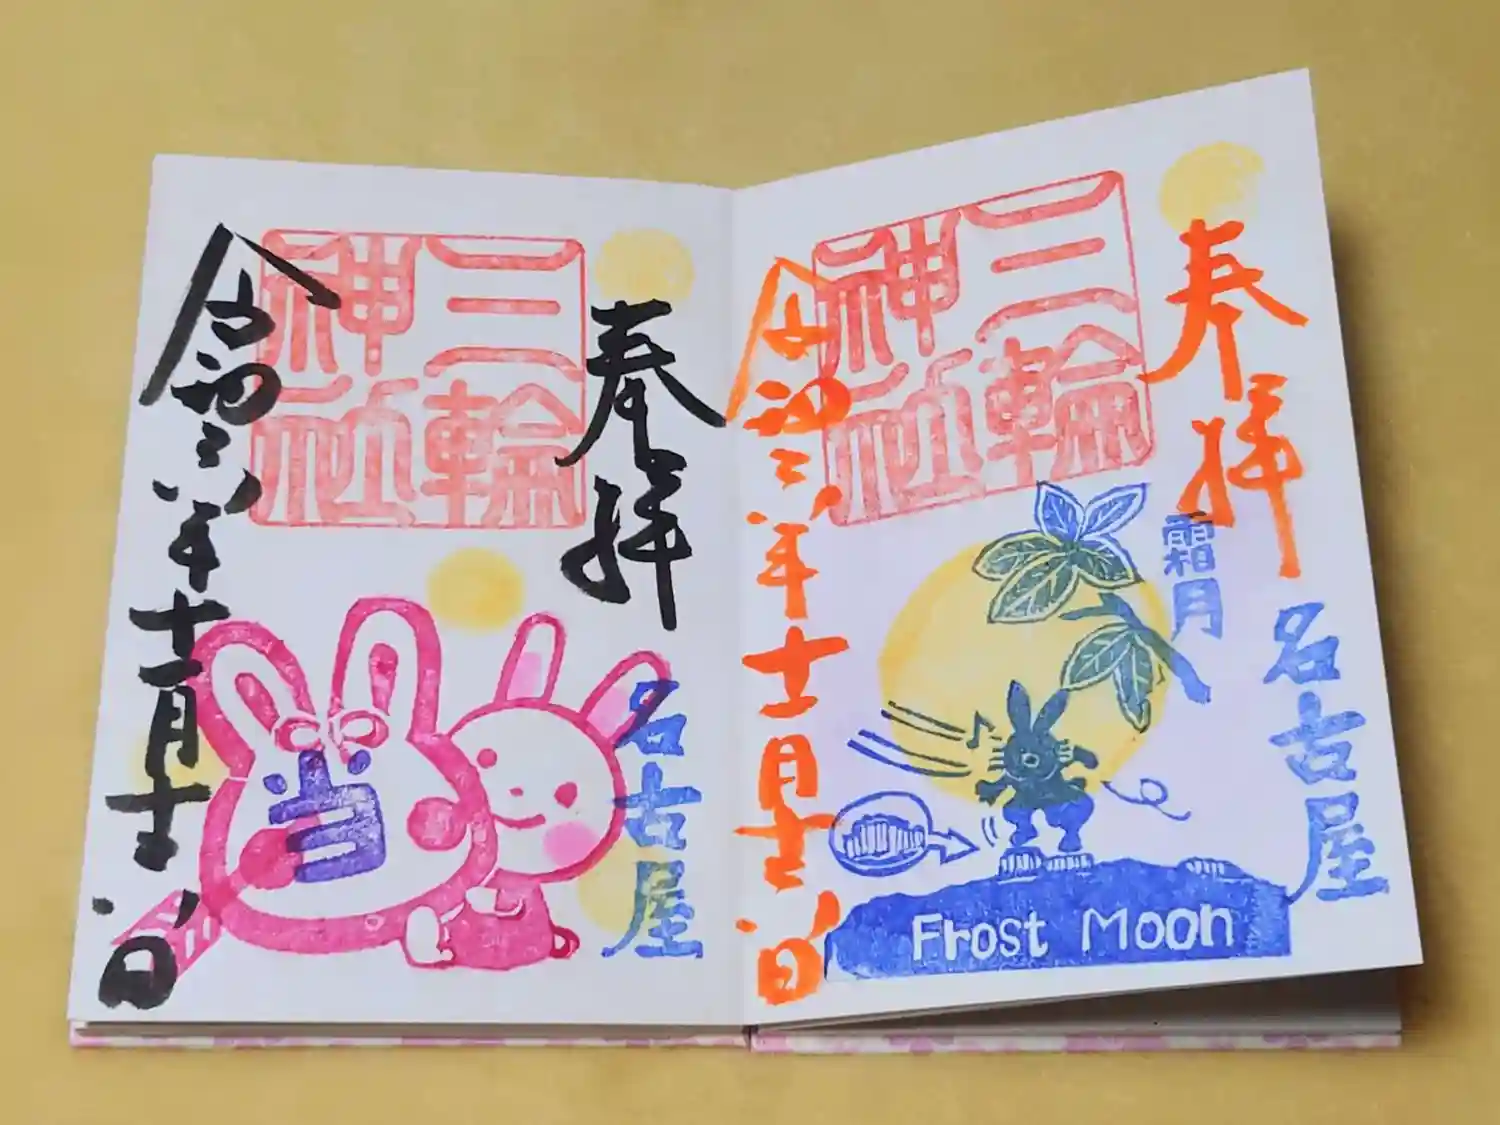 奉拝
三輪
神社
名古屋
令和六年十一月十六日
奉拝
三輪
神社
霜月
名古屋
Frost Moon
令和六年十一月十六日